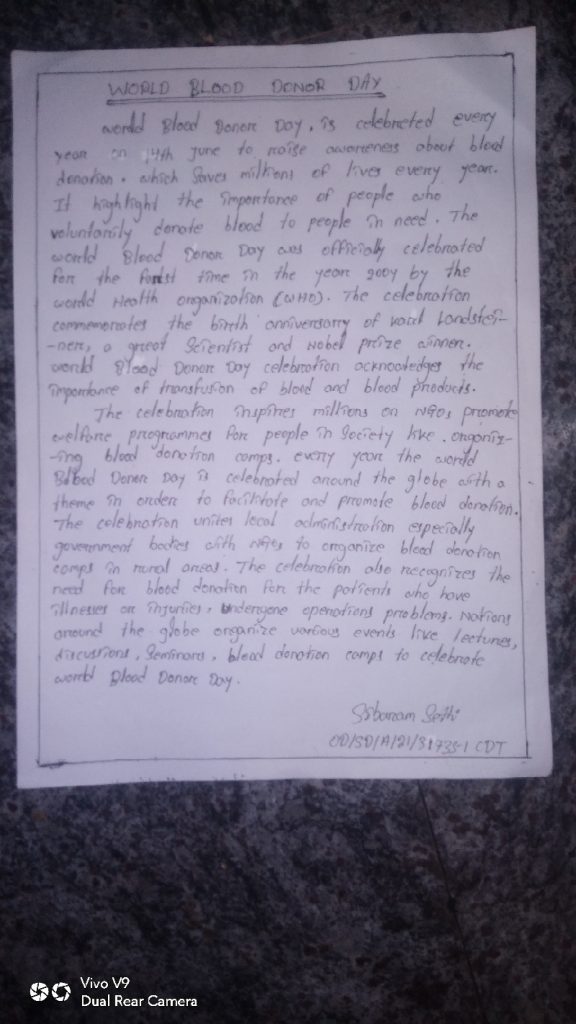 WORLD BLOOD DONOR DAY
World Blood Donor Day, is celebrated every
year on 14th June to raise awareness about blood
donation. which saves millions of lives every year.
It highlight the importance of people who
voluntarily donate blood to people in need. The
world Blood Donor Day was officially celebrated
for the first time in the year 2004 by the
world Health organization (WHO). The celebration
commemorates the birth anniversarry of Karl Landstei-
-ner, a great Scientist and Nobel prize winner.
world Blood Donor Day celebration acknowledges the
importance of transfusion of blood and blood products.
The celebration inspires millions on NGOs promote
welfare programmes for people in Society like. organiz-
-ing blood donation camps. every year the world
Blood Donor Day is celebrated around the globe with a
theme in order to facilitate and promote blood donation.
The celebration unites local administration especially
government bodies with NGOs to organize blood donation
camps in rural areas. The celebration also recognizes the
need for blood donation for the patients who have
illnesses or injuries, undergone operations problems. Nations
around the globe organize various events like lectures,
discussions, Seminars, blood donation camps to celebrate
world Blood Donor Day.
Sethi
CDT
Vivo V9
Dual Rear Camera